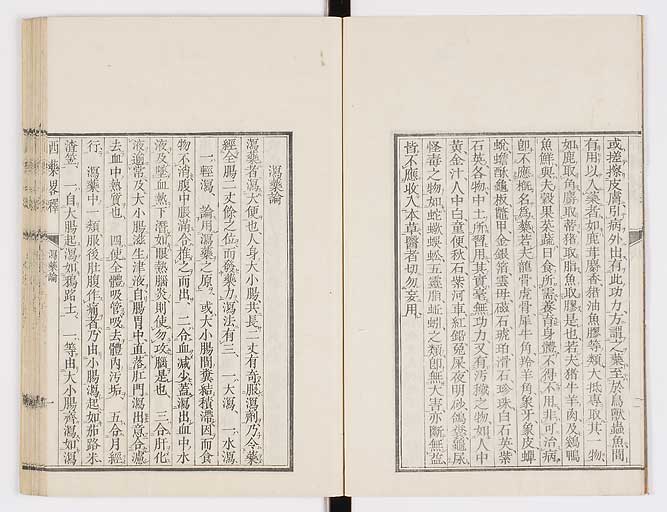 或搓擦皮膚引病外出有此功力方謂之藥至於鳥獸蟲魚間
有用以入藥者如鹿茸麝香猪油魚膠等類大抵專取其一物
如鹿取角麝取蒂猪取脂魚取膠是也若夫猪牛羊肉及鷄鴨
魚鮮與夫穀果菜蔬日食所需養育身體不得不用非可治病
卽不應槪名爲藥若夫龍骨虎骨犀牛角羚羊角象牙象皮蟬
蛻蟾酥龜板鼈甲金銀箔雲母磁石琥珀滑石珍珠白石英紫
石英各物中土所習用其實毫無功力又有汚穢之物如人中
黃金汁人中白童便秋石紫河車紅鉛兔屎夜明砂鴿糞龜尿
怪毒之物如蛇蠍蜈蚣五靈脂蚯蚓之類卽無大害亦斷無益
皆不應收入本草醫者切勿妄用
瀉藥論
瀉藥者瀉大便也人身大小腸共長二丈有奇服瀉劑乃令藥
經全腸二丈餘之位而發藥力瀉法有三　一大瀉　一水瀉
一輕瀉　論用瀉藥之原　或大小腸間糞結積滯因而食
物不消腹中脹滿令推之而出　二令血減少蓋瀉出血中水
液及墜血熱下潛如眼熱腦炎則使勿攻腦是也　三令肝化
液適常及大小腸滋生津液自腸胃中直落肛門瀉出意令濾
去血中熱質也　四使全體吸管吸去體內汚垢　五令月經
行　瀉藥中一類服後肚腹作痛者乃由小腸瀉起如茄路米
渣笠　一自大腸起瀉如鴉路士　一等由大小腸齊瀉如瀉
西藥畧釋
瀉藥論
一